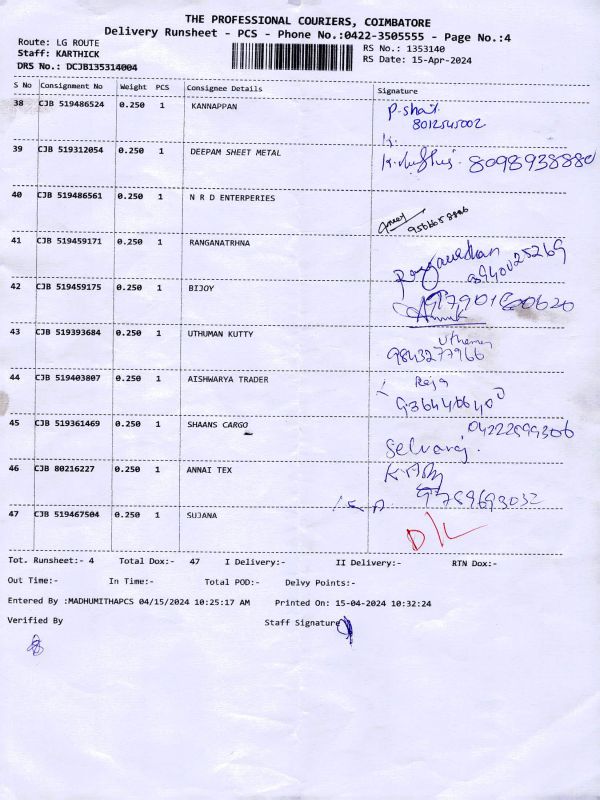 THE PROFESSIONAL COURIERS, COIMBATORE
Delivery Runsheet - PCS - Phone No.:0422-3505555 - Page No.:4
Route: LG ROUTE
Staff: KARTHICK
DRS No.: DCJB135314004
RS No.: 1353140
RS Date: 15-Apr-2024
S No Consignment No Weight PCS Consignee Details Signature
38 CJB 519486524 0.250 1 KANNAPPAN
8012545002
39 CJB 519312054 0.250 1 DEEPAM SHEET METAL 8098938880
40 CJB 519486561 N R D ENTERPERIES
41 CJB 519459171 0.250 1 RANGANATRHNA
42 CJB 519459175 0.250 1 BIJOY
43 CJB 519393684 0.250 1 UTHUMAN KUTTY
9843277966
44 CJB 519403807 0.250 1 AISHWARYA TRADER Raja
45 CJB 519361469 0.250 1 SHAANS CARGO 04222599306
Selvaraj.
46 CJB 80216227 0.250 1 ANNAI TEX
47 CJB 519467504 0.250 1 SUJANA D/L
Tot. Runsheet:- 4 Total Dox:- 47 I Delivery:- II Delivery:- RTN Dox:-
Out Time:- In Time:- Total POD:- Delvy Points:-
Entered By :MADHUMITHAPCS 04/15/2024 10:25:17 AM Printed On: 15-04-2024 10:32:24
Verified By Staff Signature